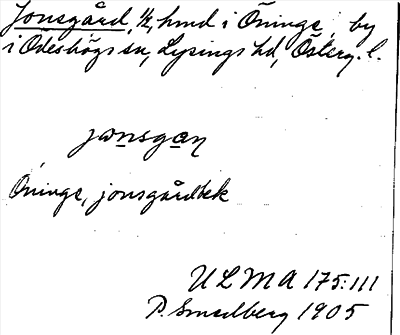 Jonsgård, 1/2, hmd i Öninge, by
i Ödeshögs sn, Lysings hd, Österg. l.
jonsgan
Öninge, jonsgårdbek
ULMA 175:111
P. Smedberg 1905